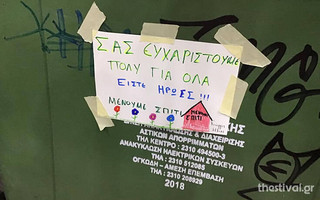 ΣΑΣ ΕΥΧΑΡΙΣΤΟΥΜΕ
ΠΟΛΥ ΓΙΑ ΟΛΑ
ΕΙΣΤΕ ΗΡΩΕΣ!!!
ΜΕΝΟΥΜΕ ΣΠΙΤΙ
& ΔΙΑΧΕΙΡΙΣΗΣ
ΑΣΤΙΚΩΝ ΑΠΟΡΡΙΜΜΑΤΩΝ
ΤΗΛ ΚΕΝΤΡΟ : 2310 494500-3
ΑΝΑΚΥΚΛΩΣΗ ΗΛΕΚΤΡΙΚΩΝ ΣΥΣΚΕΥΩΝ
ΤΗΛ : 2310 512085
ΟΓΚΩΔΗ - ΑΜΕΣΗ ΕΠΕΜΒΑΣΗ
ΤΗΛ : 2310 208929
2018
thestival.gr